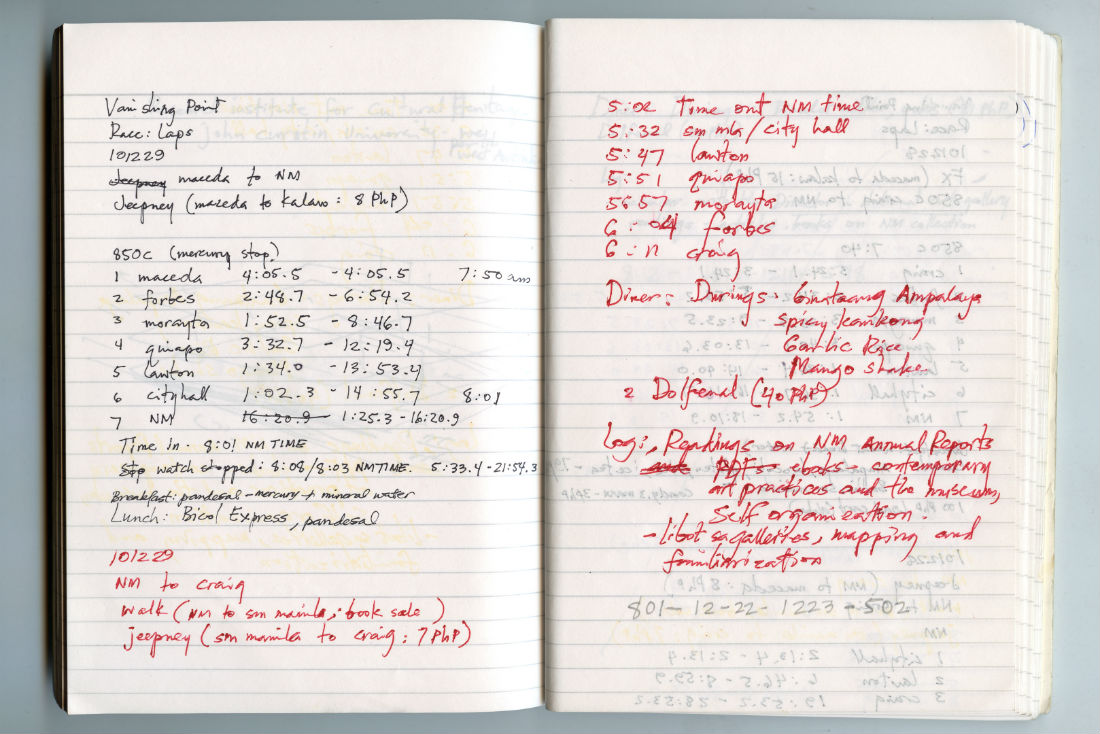 Vanishing Point
Race: Laps
101229
Jeepney maceda to NM
Jeepney (maceda to Kalaw : 8 PhP)
850c (mercury stop)
1 maceda 4:05.5 - 4:05.5 7:50 am
2 forbes 2:48.7 - 6:54.2
3 morayta 1:52.5 - 8:46.7
4 quiapo 3:32.7 - 12:19.4
5 lawton 1:34.0 - 13:53.4
6 cityhall 1:02.3 - 14:55.7 8:01
7 NM 16:20.9 1:25.3 - 16:20.9
Time in - 8:01 NM TIME
Stop watch stopped : 8:08/8:03 NM TIME. 5:33.4 - 21:54.3
Breakfast: pandesal - mercury + mineral water
Lunch: Bicol Express, pandesal
101229
NM to craig
walk (NM to sm manila; book sale)
jeepney (sm manila to craig : 7 PhP)
5:02 Time out NM time
5:32 sm mla/city hall
5:47 lawton
5:51 quiapo
5:57 morayta
6:04 forbes
6:11 craig
Diner: Durings - Ginataang Ampalaya
- Spicy kankong
- Garlic Rice
- Mango shake
2 Dolfenal (40 PhP)
Log:, Readings on NM Annual Reports
PDFs - ebooks - contemporary
art practices and the museum,
Self organization.
- libot sa galleries, mapping and
familiarization
801 - 12-22 - 1223 - 502